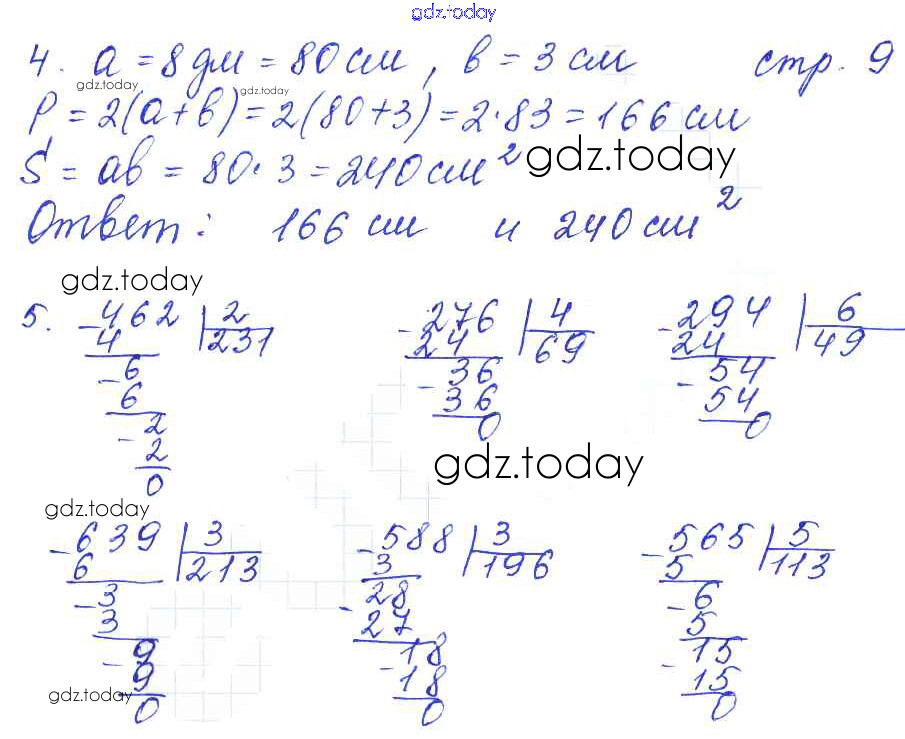 gdz.today
4. a = 8 дм = 80 см, в = 3 см стр. 9
gdz.today gdz.today
P = 2(a+в) = 2(80+3) = 2·83 = 166 см
S = aв = 80·3 = 240 см²
gdz.today
Ответ: 166 см и 240 см²
gdz.today
5. -462 | 2 -276 | 4 -294 | 6
4 | 231 24 | 69 24 | 49
-6 -36 -54
6 36 54
-2 0 0
2
0
gdz.today
gdz.today
-639 | 3 -588 | 3 -565 | 5
6 | 213 3 | 196 5 | 113
-3 -28 -6
3 27 5
-9 -18 -15
9 18 15
0 0 0
gdz.today